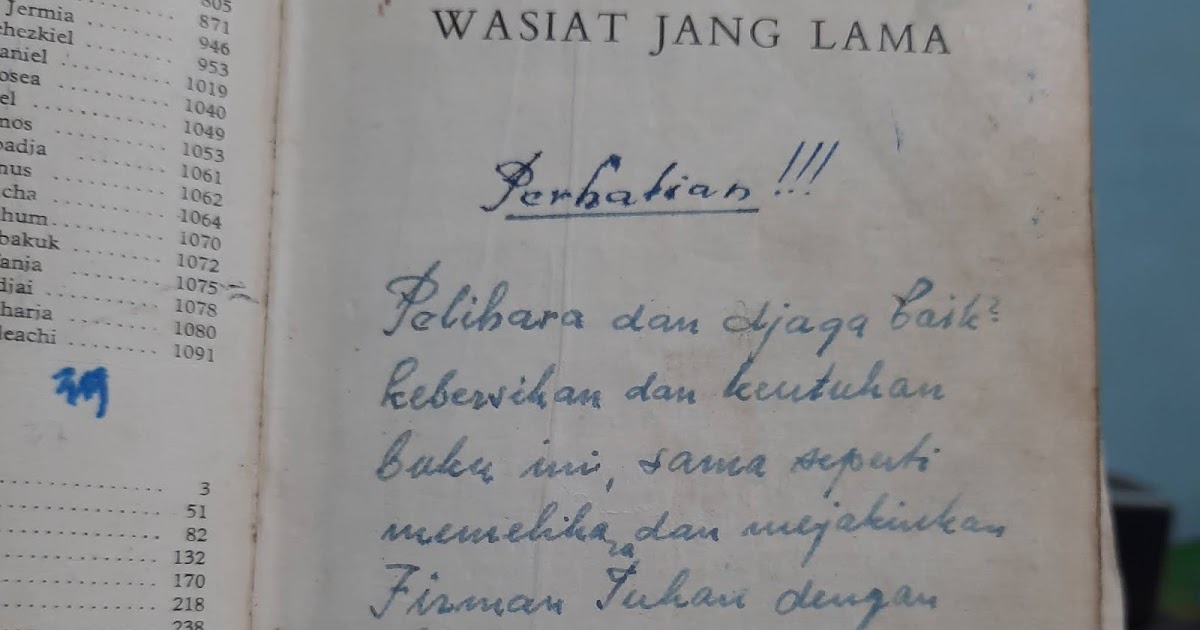 805
Jermia 871
hezkiel 946
aniel 953
osea 1019
el 1040
nos 1049
badja 1053
nus 1061
cha 1062
hum 1064
bakuk 1070
anja 1072
djai 1075
harja 1078
leachi 1080
1091
3
51
82
132
170
218
238
WASIAT JANG LAMA
Perhatian !!!
Pelihara dan djaga baik²
kebersihan dan keutuhan
buku ini, sama seperti
memelihara dan mejakinkan
Firman Tuhan dengan